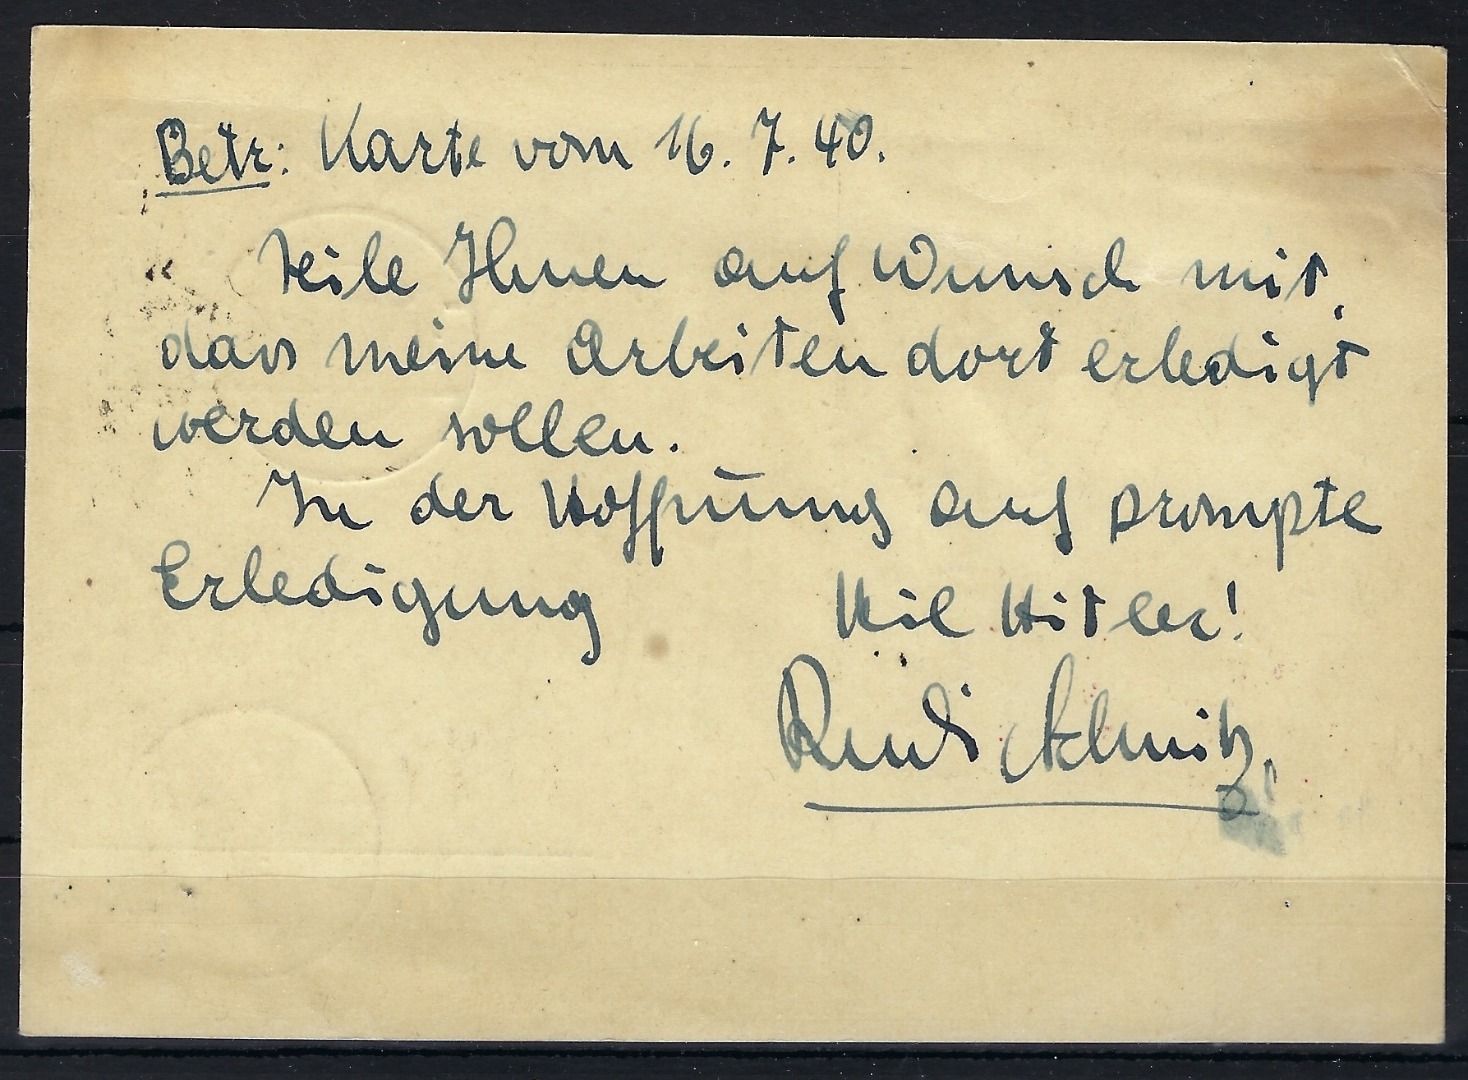 Betr: Karte vom 16. 7. 40.
Teile Ihnen auf Wunsch mit,
dass meine Arbeiten dort erledigt
werden sollen.
In der Hoffnung auf prompte
Erledigung Heil Hitler!
Rudi Schmitz